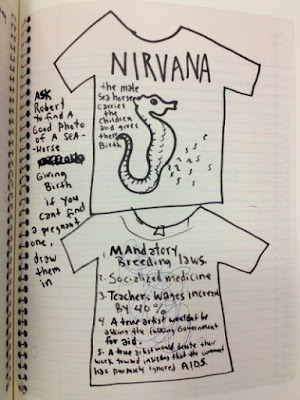 NIRVANA
the male
Sea horse
carries
the
children
and gives
them
Birth
ASK
Robert
to find A
Good Photo
of A SEA-
Horse
Giving
Birth
if you
cant find
a pregnant
one,
draw
them
in
1. MANdatory
Breeding laws.
2. Socialized medicine
3. Teachers Wages increase
By 40%
4. A true artist wouldnt be
asking the Government
for aid.
5. A true artist would devote their
work toward insisting that the
has purposely ignored AIDS.